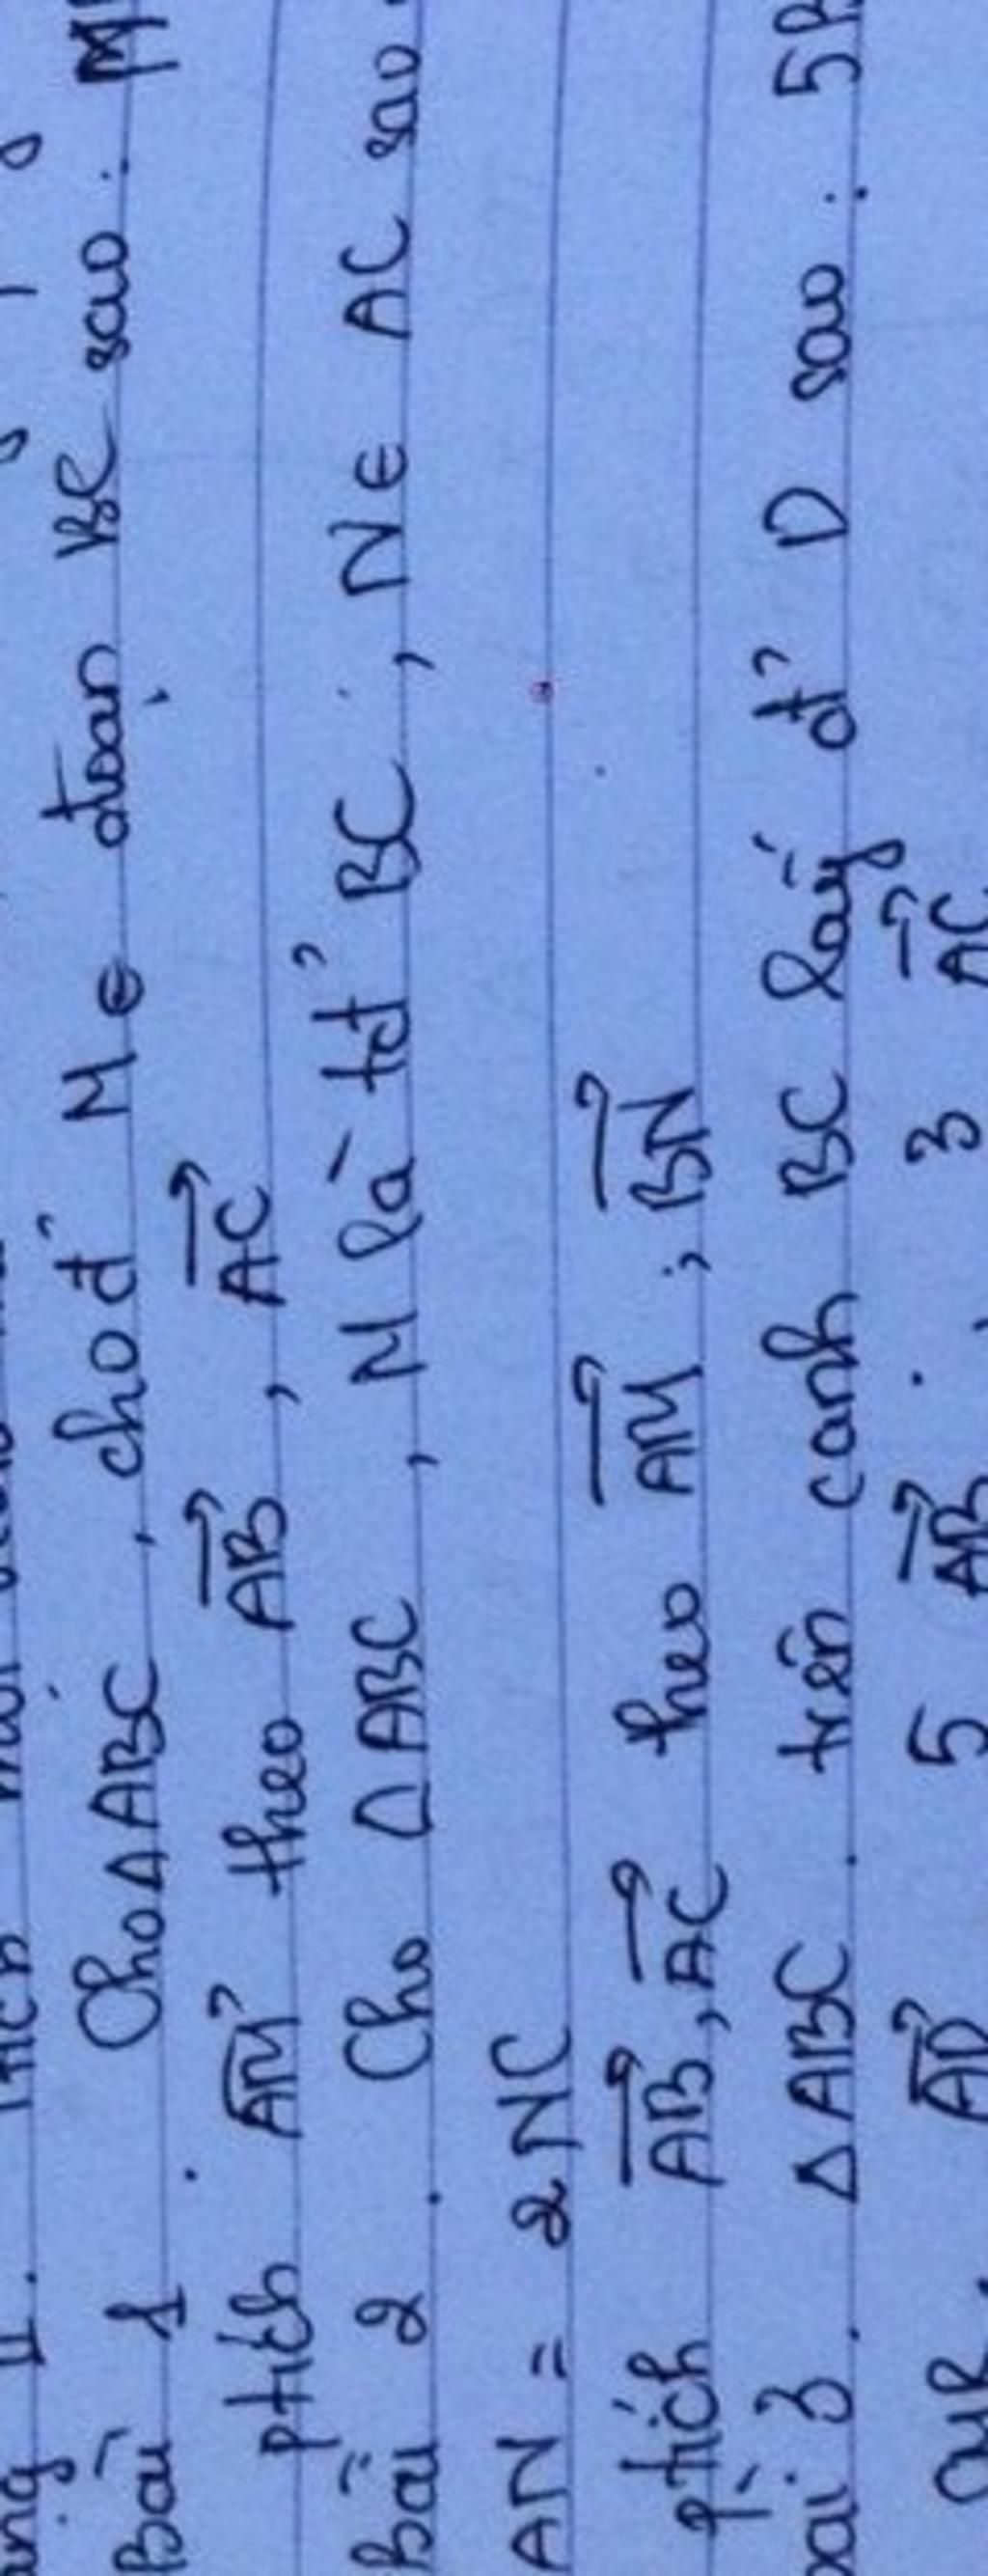 Bài 1. Cho ΔABC, cho đ' M ∈ đoạn BC sao. M
ptích AM theo AB, AC
Bài 2. Cho Δ ABC, M là tđ' BC, N ∈ AC sao
AN = 2 NC
ptích AB, AC theo AM; BN
3. Δ ABC. trên cạnh BC lấy đ' D sao: 5
AD 5 AB 3 AC